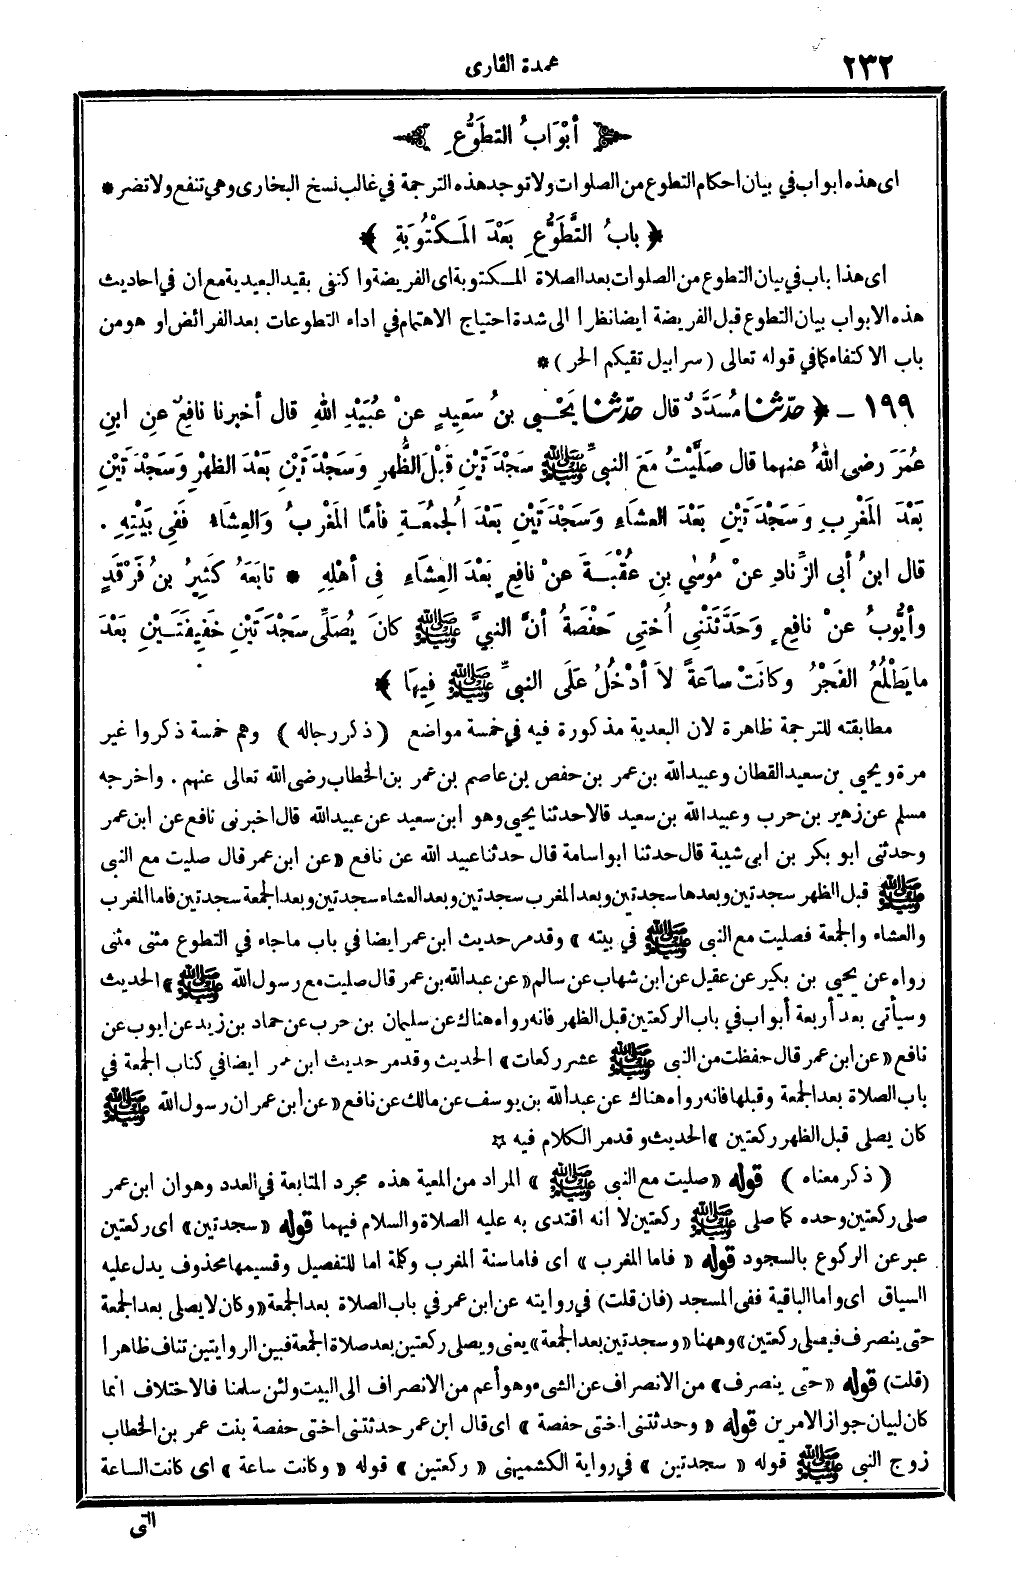 ٢٣٢
عمدة القارى
أبْوَابُ التطَوُّعِ
اى هذه ابواب في بيان احكام التطوع من الصلوات ولا توجد هذه الترجمة في غالب نسخ البخارى وهي تنفع ولا تضر *
﴿ بابُ التَّطَوُّعِ بَعْدَ المَكْتُوبَةِ ﴾
اى هذا باب في بيان التطوع من الصلوات بعد الصلاة المكتوبة اى الفريضة واكتفى بقيد البعيدية مع ان في احاديث
هذه الابواب بيان التطوع قبل الفريضة ايضا نظرا الى شدة احتياج الاهتمام في اداء التطوعات بعد الفرائض او هو من
باب الاكتفاء كما في قوله تعالى ( سرابيل تقيكم الحر ) *
١٩٩ ـ ﴿ حدّثنا مُسَدَّدٌ قال حدّثنا يَحْيى بنُ سَعِيدٍ عنْ عُبَيْدِ اللهِ قال أخبرنا نافِعٌ عنِ ابنِ
عُمَرَ رضى اللهُ عنهما قال صَلَّيْتُ مَعَ النبىِّ ﷺ سَجْدَتَيْنِ قَبْلَ الظُّهرِ وَسَجْدَتَيْنِ بَعْدَ الظهرِ وَسَجْدَتَيْنِ
بَعْدَ المَغْرِبِ وَسَجْدَتَيْنِ بَعْدَ العِشَاءِ وَسَجْدَتَيْنِ بَعْدَ الجُمعَةِ فأمَّا المَغْرِبُ وَالعِشَاءُ فَفِى بَيْتِهِ .
قال ابنُ أبى الزِّنادِ عنْ مُوسٰى بنِ عُقْبَةَ عنْ نافِعٍ بَعْدَ العِشَاءِ فِى أهْلِهِ * تابَعَهُ كَثِيرُ بنُ فَرْقَدٍ
وأيُّوبُ عنْ نافِعٍ وَحَدَّثَتْنِى أُخْتِى حَفْصَةُ أنَّ النبىَّ ﷺ كانَ يُصَلِّى سَجْدَتَيْنِ خَفِيفَتَيْنِ بَعْدَ
ما يَطْلُعُ الفَجْرُ وكانَتْ ساعَةً لاَ أدْخُلُ عَلَى النبىِّ ﷺ فِيهَا ﴾
مطابقته للترجمة ظاهرة لان البعدية مذكورة فيه في خمسة مواضع ( ذكر رجاله ) وهم خمسة ذكروا غير
مرة ويحيى بن سعيد القطان وعبيد الله بن عمر بن حفص بن عاصم بن عمر بن الخطاب رضى الله تعالى عنهم . واخرجه
مسلم عن زهير بن حرب وعبيد الله بن سعيد قالا حدثنا يحيى وهو ابن سعيد عن عبيد الله قال اخبرنى نافع عن ابن عمر
وحدثنى ابو بكر بن ابى شيبة قال حدثنا ابو اسامة قال حدثنا عبيد الله عن نافع «عن ابن عمر قال صليت مع النبى
ﷺ قبل الظهر سجدتين وبعدها سجدتين وبعد المغرب سجدتين وبعد العشاء سجدتين وبعد الجمعة سجدتين فاما المغرب
والعشاء والجمعة فصليت مع النبى ﷺ في بيته » وقد مر حديث ابن عمر ايضا في باب ما جاء في التطوع مثنى مثنى
رواه عن يحيى بن بكير عن عقيل عن ابن شهاب عن سالم «عن عبد الله بن عمر قال صليت مع رسول الله ﷺ» الحديث
وسيأتى بعد أربعة أبواب في باب الركعتين قبل الظهر فانه رواه هناك عن سليمان بن حرب عن حماد بن زيد عن ايوب عن
نافع «عن ابن عمر قال حفظت من النبى ﷺ عشر ركعات» الحديث وقد مر حديث ابن عمر ايضا في كتاب الجمعة في
باب الصلاة بعد الجمعة وقبلها فانه رواه هناك عن عبد الله بن يوسف عن مالك عن نافع «عن ابن عمر ان رسول الله ﷺ
كان يصلى قبل الظهر ركعتين » الحديث وقد مر الكلام فيه *
( ذكر معناه ) قوله «صليت مع النبى ﷺ » المراد من المعية هذه مجرد المتابعة في العدد وهو ان ابن عمر
صلى ركعتين وحده كما صلى ﷺ ركعتين لا انه اقتدى به عليه الصلاة والسلام فيهما قوله «سجدتين» اى ركعتين
عبر عن الركوع بالسجود قوله « فاما المغرب » اى فاما سنة المغرب وكلمة اما للتفصيل وقسيمها محذوف يدل عليه
السياق اى واما الباقية ففى المسجد (فان قلت) في روايته عن ابن عمر في باب الصلاة بعد الجمعة «وكان لا يصلى بعد الجمعة
حتى ينصرف فيصلى ركعتين» وههنا «وسجدتين بعد الجمعة» يعنى ويصلى ركعتين بعد صلاة الجمعة فبين الروايتين تناف ظاهرا
(قلت) قوله «حتى ينصرف» من الانصراف عن الشىء وهو أعم من الانصراف الى البيت ولئن سلمنا فالاختلاف انما
كان لبيان جواز الامرين قوله « وحدثتنى اختى حفصة » اى قال ابن عمر حدثتنى اختى حفصة بنت عمر بن الخطاب
زوج النبى ﷺ قوله « سجدتين » في رواية الكشميهنى « ركعتين » قوله « وكانت ساعة » اى كانت الساعة
التى